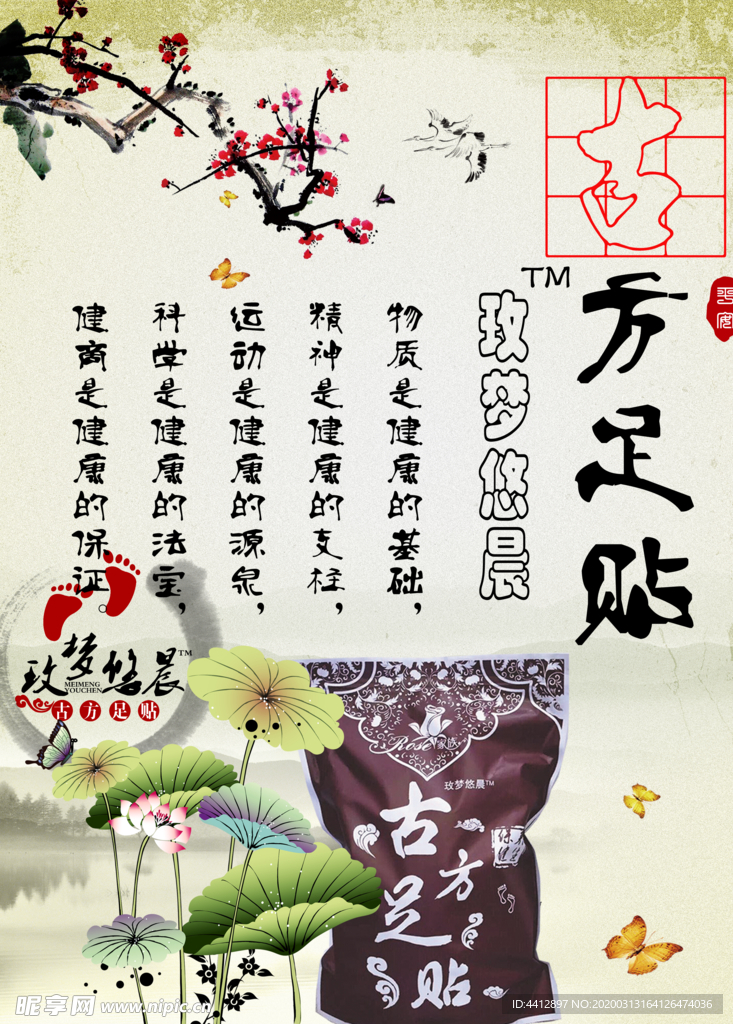 古
方足贴
平安
TM
玫梦悠晨
物质是健康的基础，
精神是健康的支柱，
运动是健康的源泉，
科学是健康的法宝，
健商是健康的保证。
玫梦悠晨TM
MEIMENG
YOUCHEN
古方足贴
Rose家族
玫梦悠晨TM
古方足贴
昵享网 www.nipic.cn
ID:4412897 NO:20200313164126474036